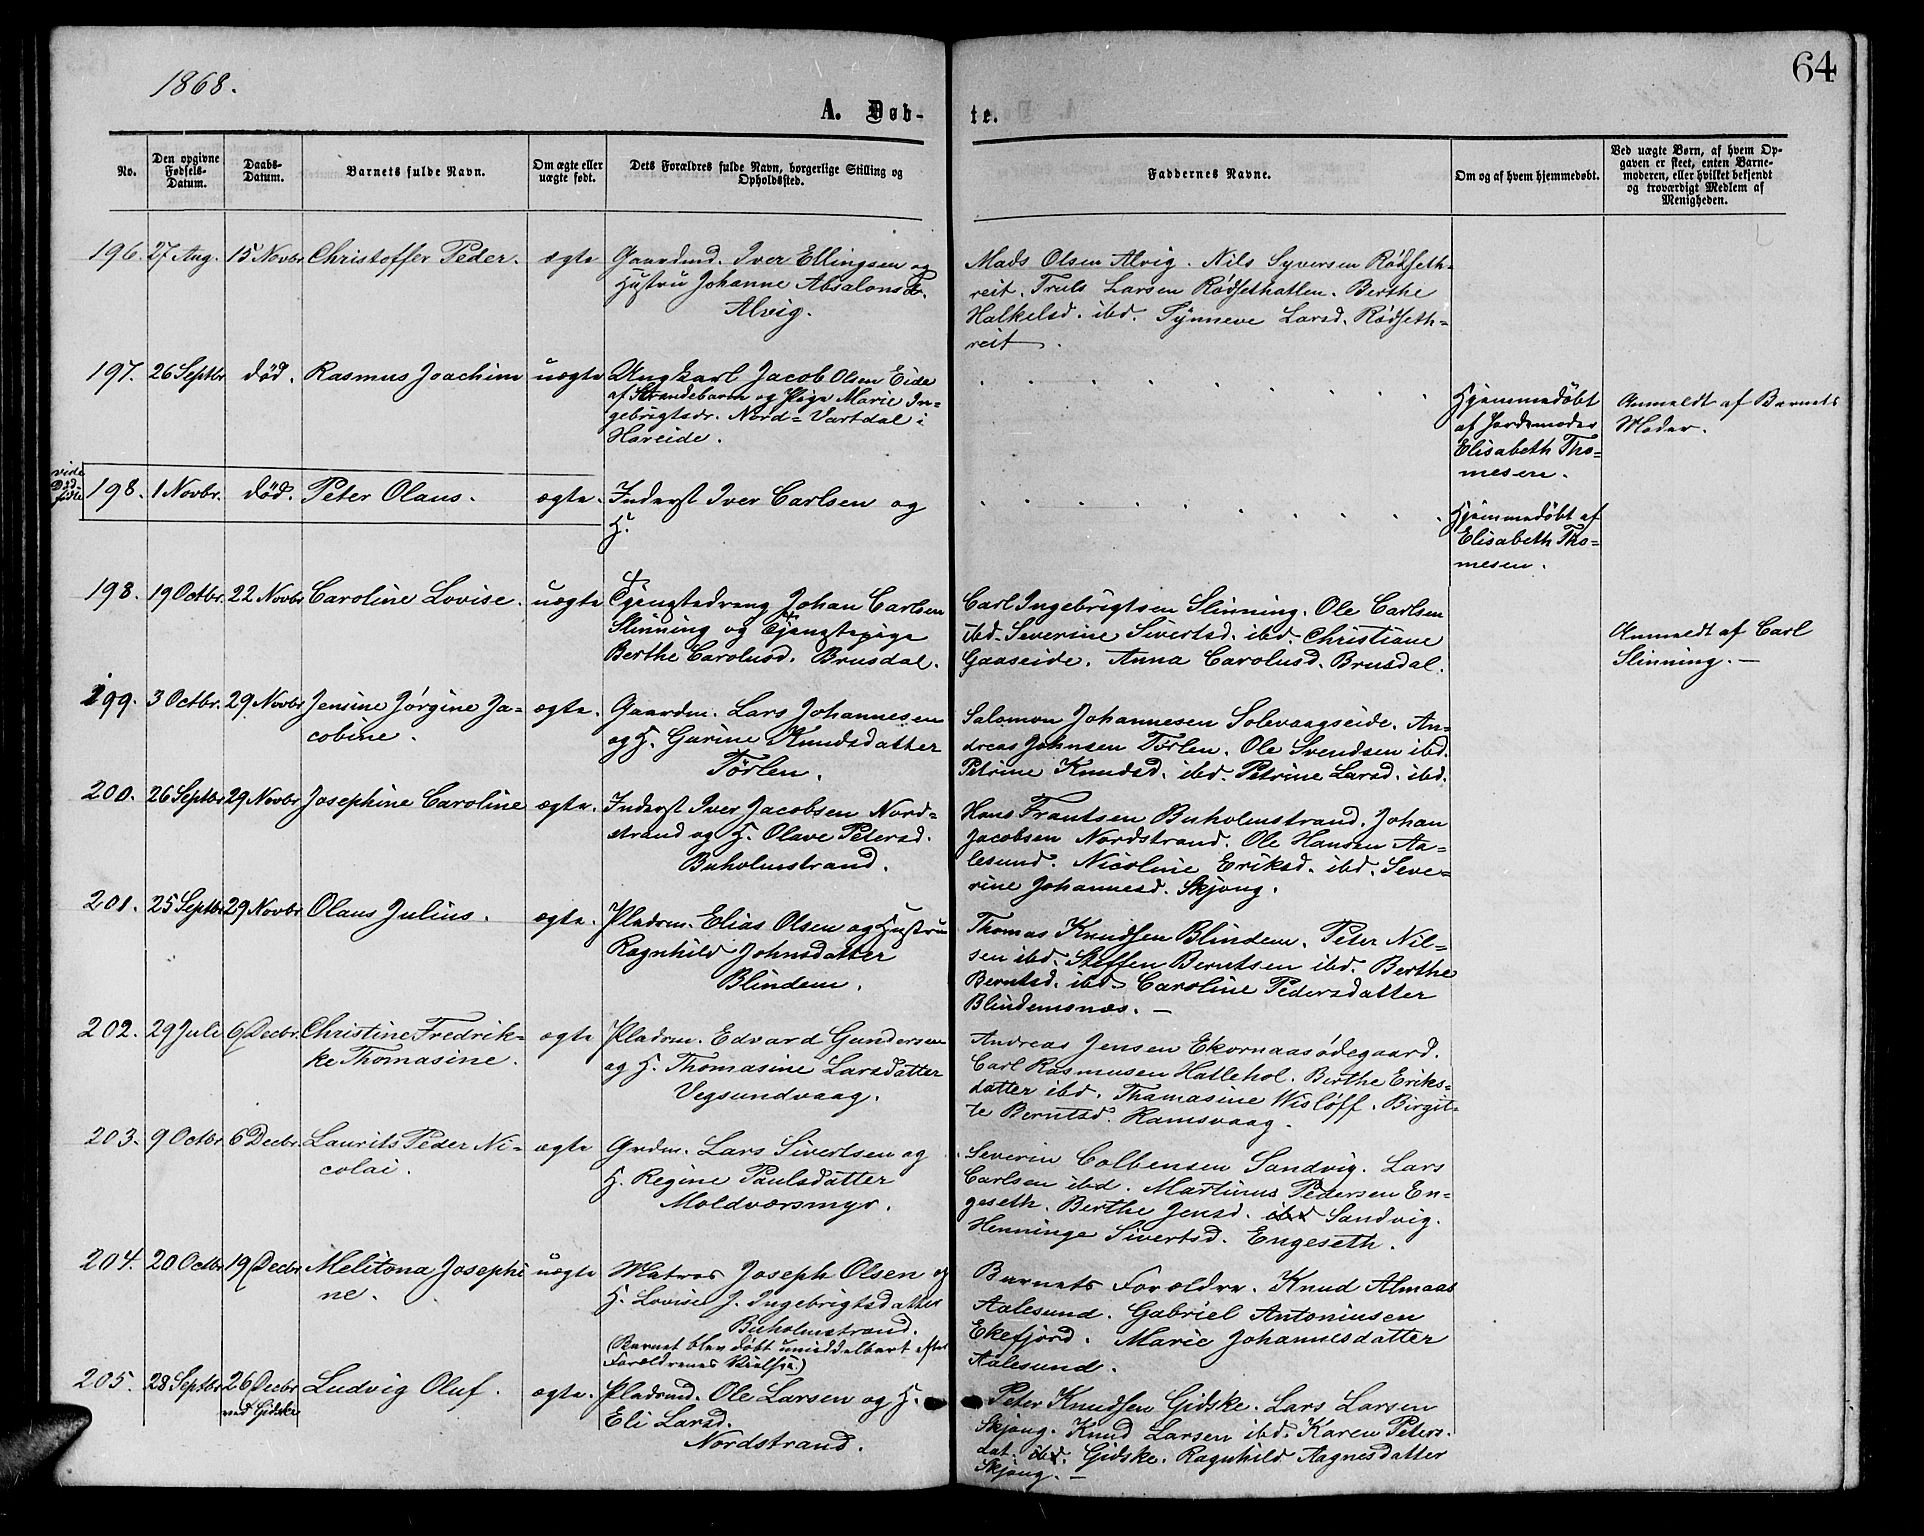 1868.
64
A. Døb-
te.
No.
Den opgivne
Fødsels-
Datum.
Daabs-
Datum.
Barnets fulde Navn.
Om ægte eller
uægte født.
Dets Forældres fulde Navn, borgerlige Stilling og
Opholdssted.
Faddernes Navne.
Om og af hvem hjemmedøbt.
Ved uægte Børn, af hvem Op-
gaven er skeet, enten Barne-
moderen, eller hvilket bekjendt
og troværdigt Medlem af
Menigheden.
196. 27 Aug. 15 Novbr. Christoffer Peder. ægte
Gaardmd. Iver Ellingsen og
Hustru Johanne Absalonsd.
Alvig.
Mads Olsen Alvig. Nils Syversen Rødseth-
reit. Truls Larsen Rødsethatlen. Berthe
Halkelsd. ibd. Synneve Larsd. Rødseth-
reit.
197. 26 Septbr. død. Rasmus Joachim uægte
Ungkarl Jacob Olsen Eide
af Strandebarm og Pige Marie In-
gebrigtsdr. Nord-Vartdal i
Hareide.
Hjemmedøbt
af Jordemoder
Elisabeth Tho-
mesen.
Anmeldt af Barnets
Moder.
vide
198. 1 Novbr. død. Peter Olaus. ægte.
Inderst Iver Carlsen og
H.
Hjemmedøbt af
Elisabeth Tho-
mesen.
198. 19 Octbr. 22 Novbr. Caroline Lovise. uægte
Tjenestedreng Johan Carlsen
Slinning og Tjenestepige
Berthe Carolusd. Brusdal.
Carl Ingebrigtsen Slinning. Ole Carlsen
ibd. Severine Sivertsd. ibd. Christiane
Gaaseide. Anna Carolusd. Brusdal.
Anmeldt af Carl
Slinning. —
199. 3 Octbr. 29 Novbr. Jensine Jørgine Ja-
cobine.
ægte.
Gaardm. Lars Johannesen
og H. Gurine Knudsdatter
Tørlen.
Salomon Johannesen Solevaagseide. An-
dreas Johnsen Tørlen. Ole Svendsen ibd.
Petrine Knudsd. ibd. Petrine Larsd. ibd.
200. 26 Septbr. 29 Novbr. Josephine Caroline ægte.
Inderst Iver Jacobsen Nord-
strand og H. Olave Petersd.
Buholmstrand.
Hans Frantsen Buholmstrand. Johan
Jacobsen Nordstrand. Ole Hansen Aa-
lesund. Nicoline Eriksd. ibd. Seve-
rine Johannesd. Skjong.
201. 25 Septbr. 29 Novbr. Olaus Julius. ægte.
Pladsm. Elias Olsen og Hustru
Ragnhild Johnsdatter
Blindem.
Thomas Knudsen Blindem. Peter Nil-
sen ibd. Steffen Berntsen ibd. Berthe
Berntsd. ibd. Caroline Pedersdatter
Blindemsnæs. —
202. 29 Juli 6 Decbr. Christine Fredrik-
ke Thomasine.
ægte
Pladsm. Edvard Gundersen
og H. Thomasine Larsdatter
Vegsundvaag.
Andreas Jensen Ekornaasødegaard.
Carl Rasmusen Hatlehol. Berthe Eriks-
datter ibd. Thamasine Wisløff. Birgit-
te Berntsd. Ramsvaag.
203. 9 Octbr. 6 Decbr. Laurits Peder Ni-
colai.
ægte
Grdm. Lars Sivertsen og
H. Regine Paulsdatter
Moldværsmyr.
Severin Colbensen Sandvig. Lars
Carlsen ibd. Martinus Pedersen En-
geseth. Berthe Jensd. ibd Sandvig.
Henninge Sivertsd. Engeseth.
204. 20 Octbr. 19 Decbr. Melitona Josephi
ne.
uægte
Matros Joseph Olsen og
H. Lovise J. Ingebrigtsdatter
Buholmstrand.
(Barnet blev døbt umiddelbart efter
Forældrenes Vielse.)
Barnets Forældre. Knud Almaas
Aalesund. Gabriel Antoniusen
Ekefjord. Marie Johannesdatter
Aalesund.
205. 28 Septbr. 26 Decbr.
ved Gidske
Ludvig Oluf. ægte.
Pladsmd. Ole Larsen og H.
Eli Larsd.
Nordstrand.
Peter Knudsen Gidske. Lars Larsen
Skjong. Knud Larsen ibd. Karen Peters-
dat. ibd. Gidske. Ragnhild Aagnesdatter
Skjong. —